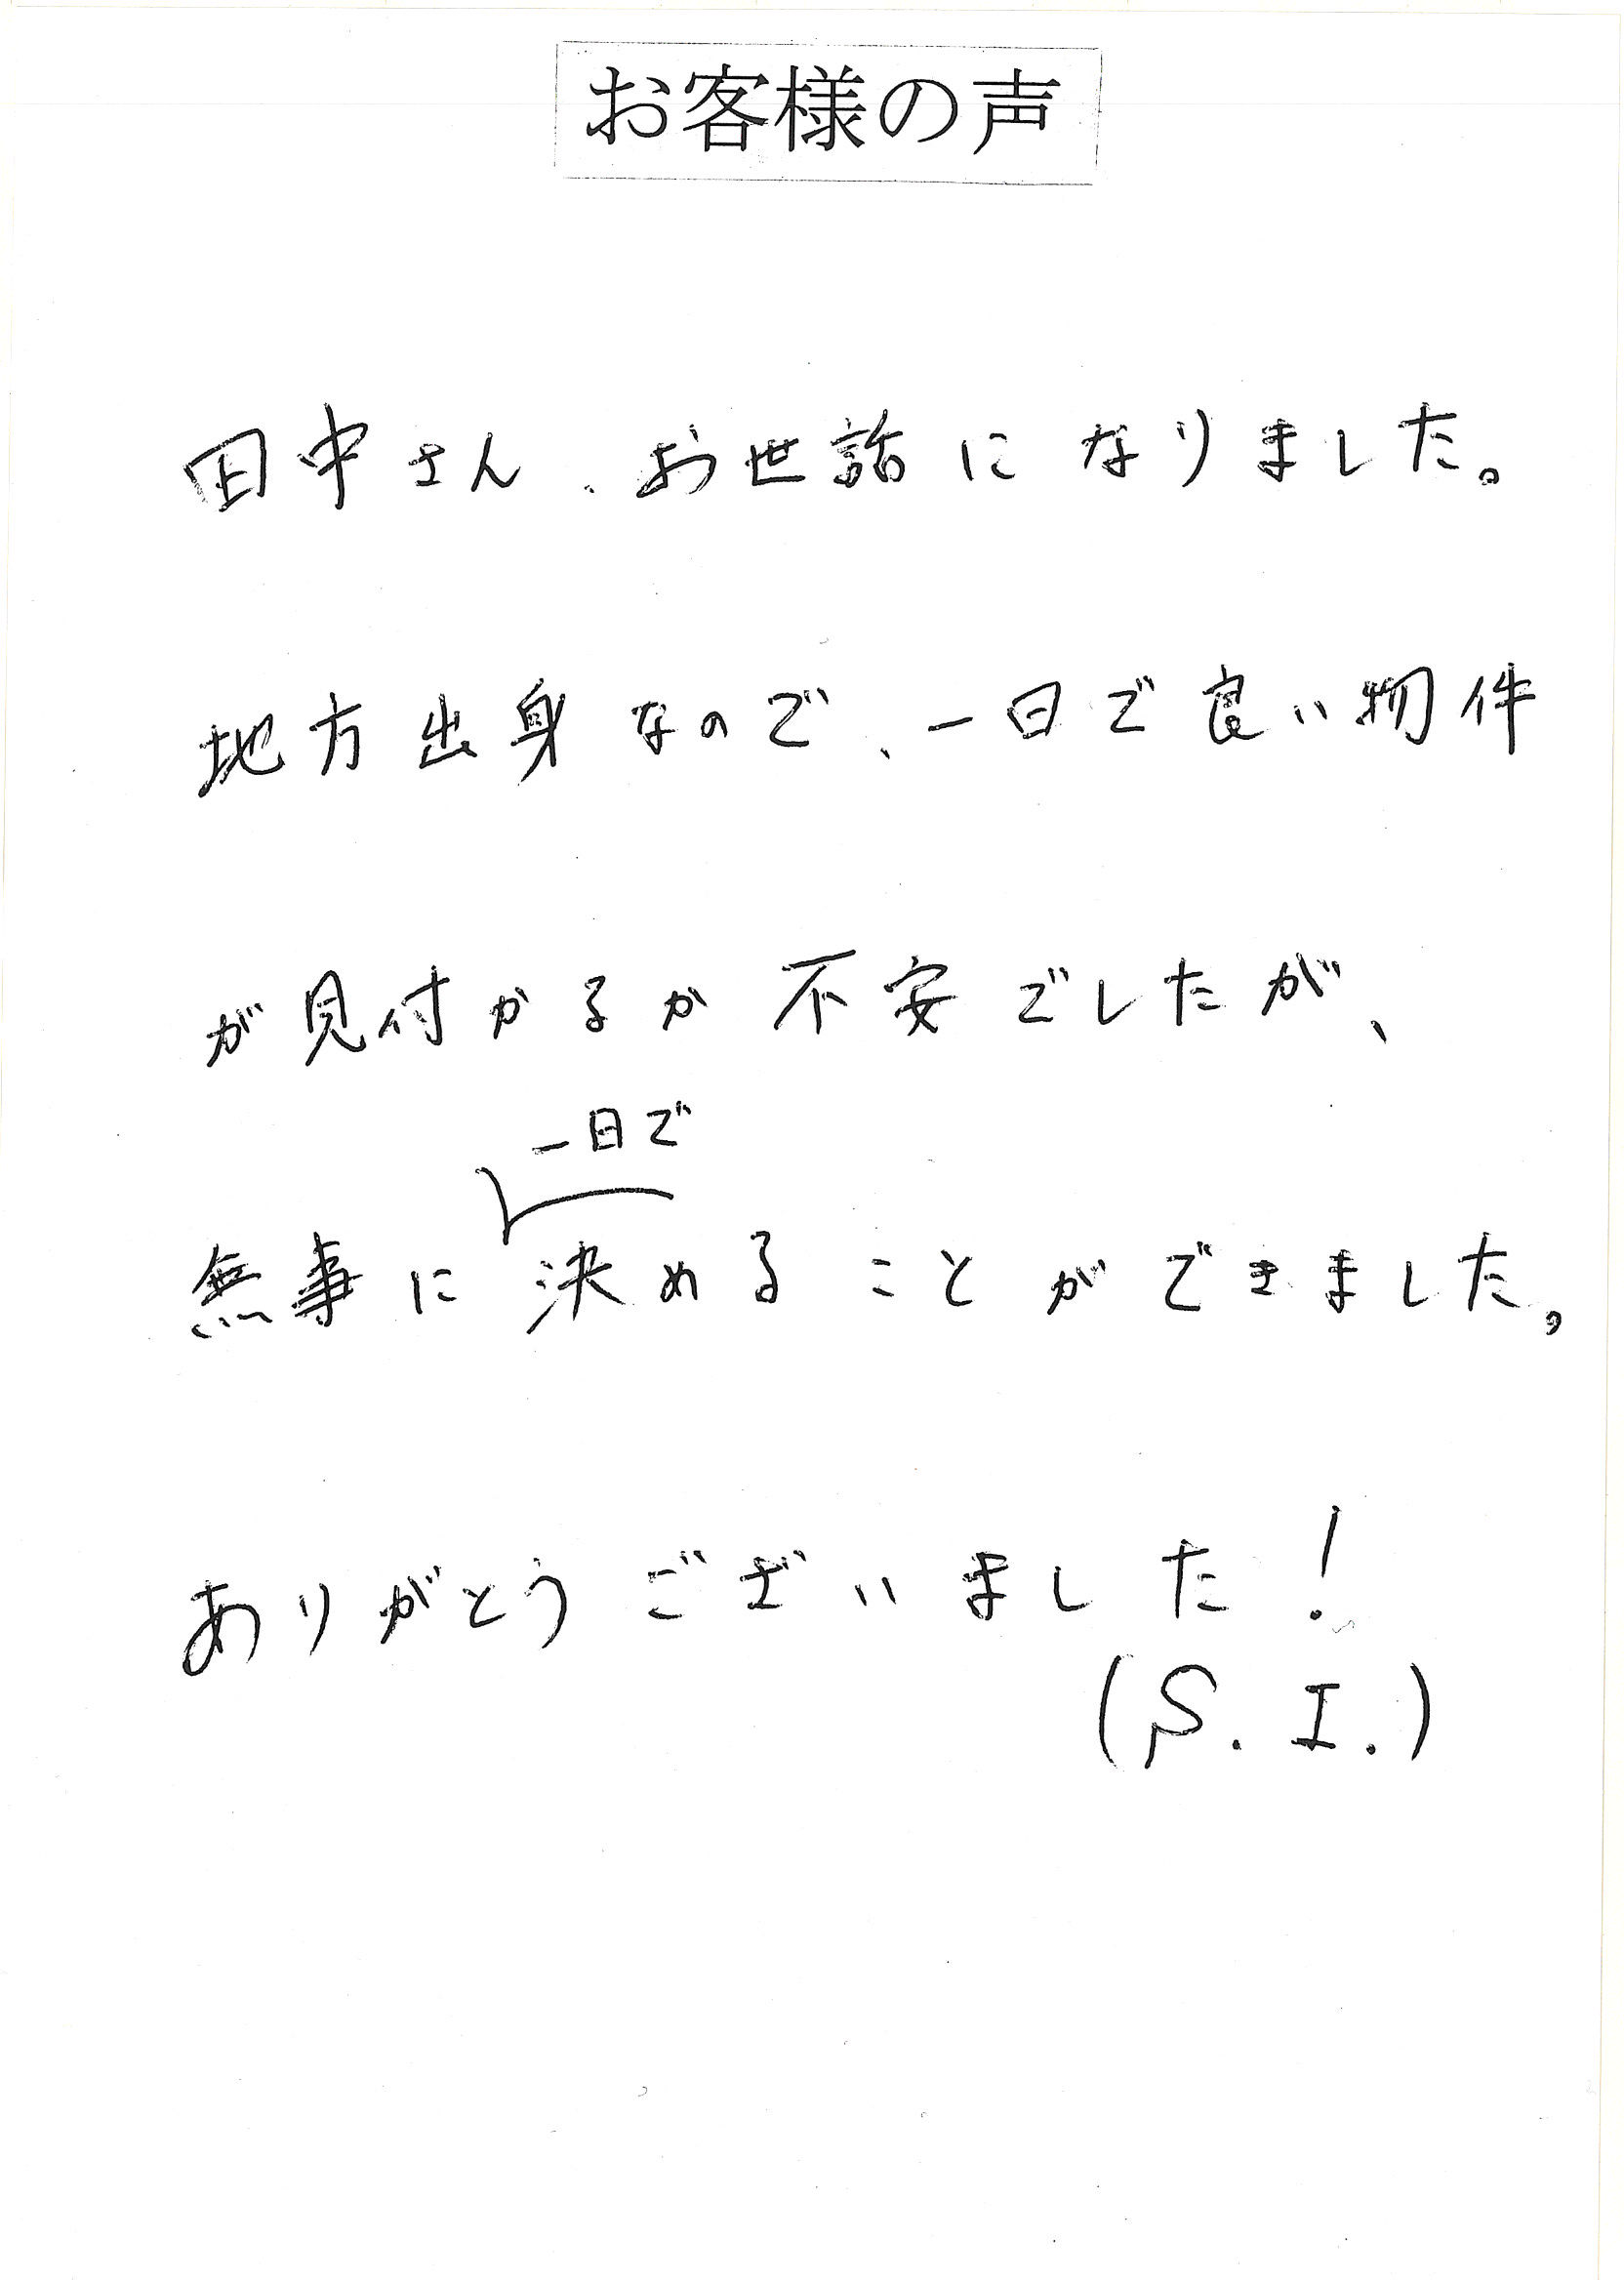 お客様の声
田中さん、お世話になりました。
地方出身なので、一日で良い物件
が見付かるか不安でしたが、
一日で
無事に決めることができました。
ありがとうございました!
(S.I.)